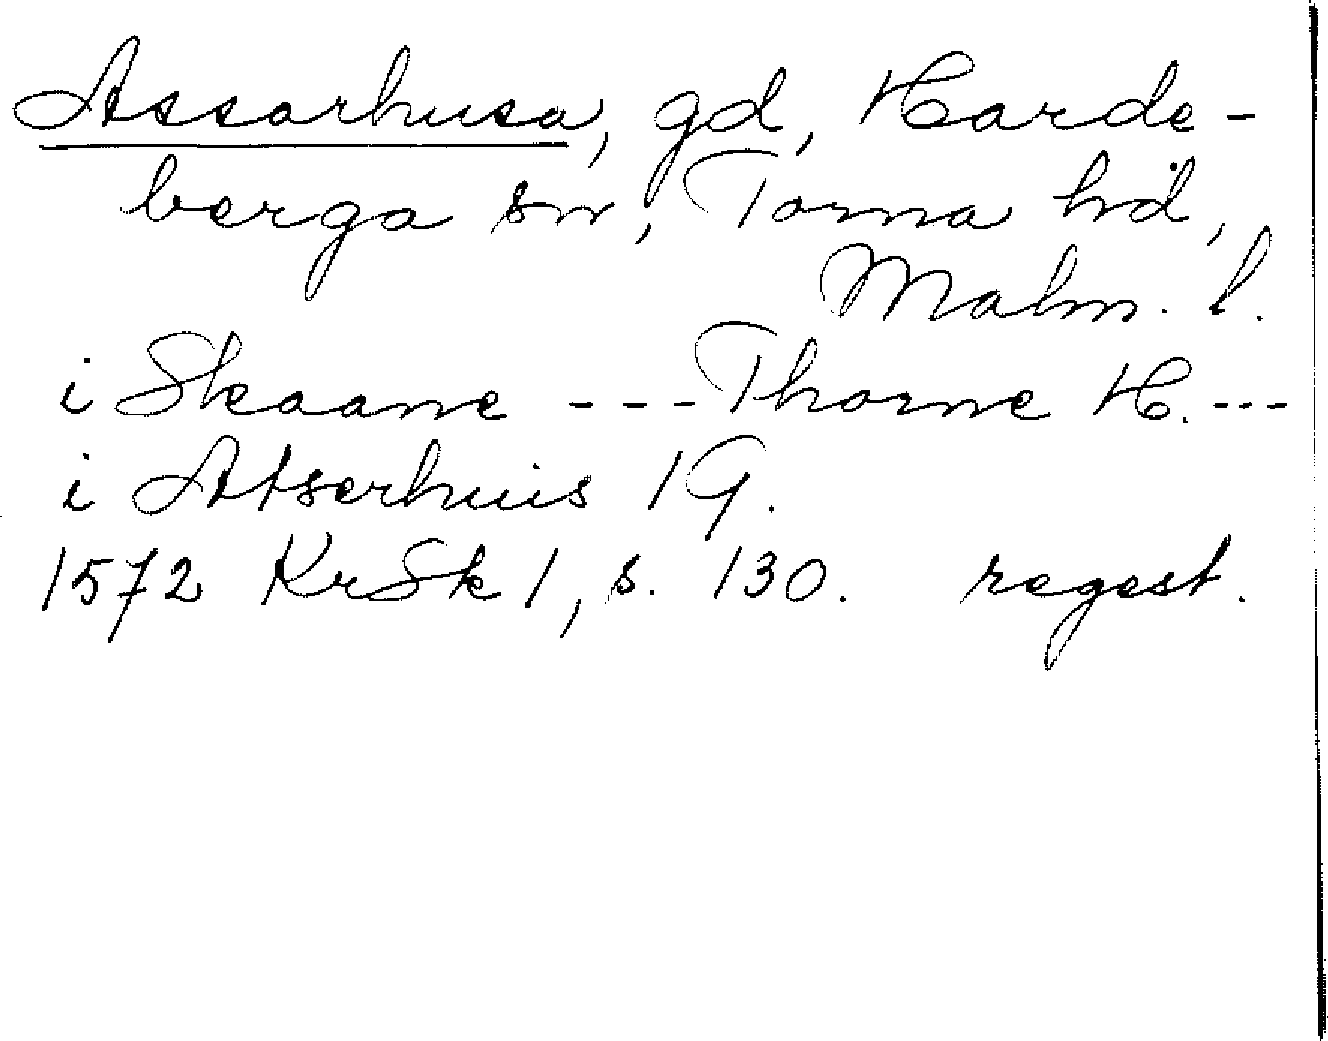 Assarhusa, gd, Harde-
berga sn, Torna hd,
Malm. l.
i Skaane --- Thorne H. ---
i Atserhuis 1 G.
1572 KrSk 1, s. 130. regest.